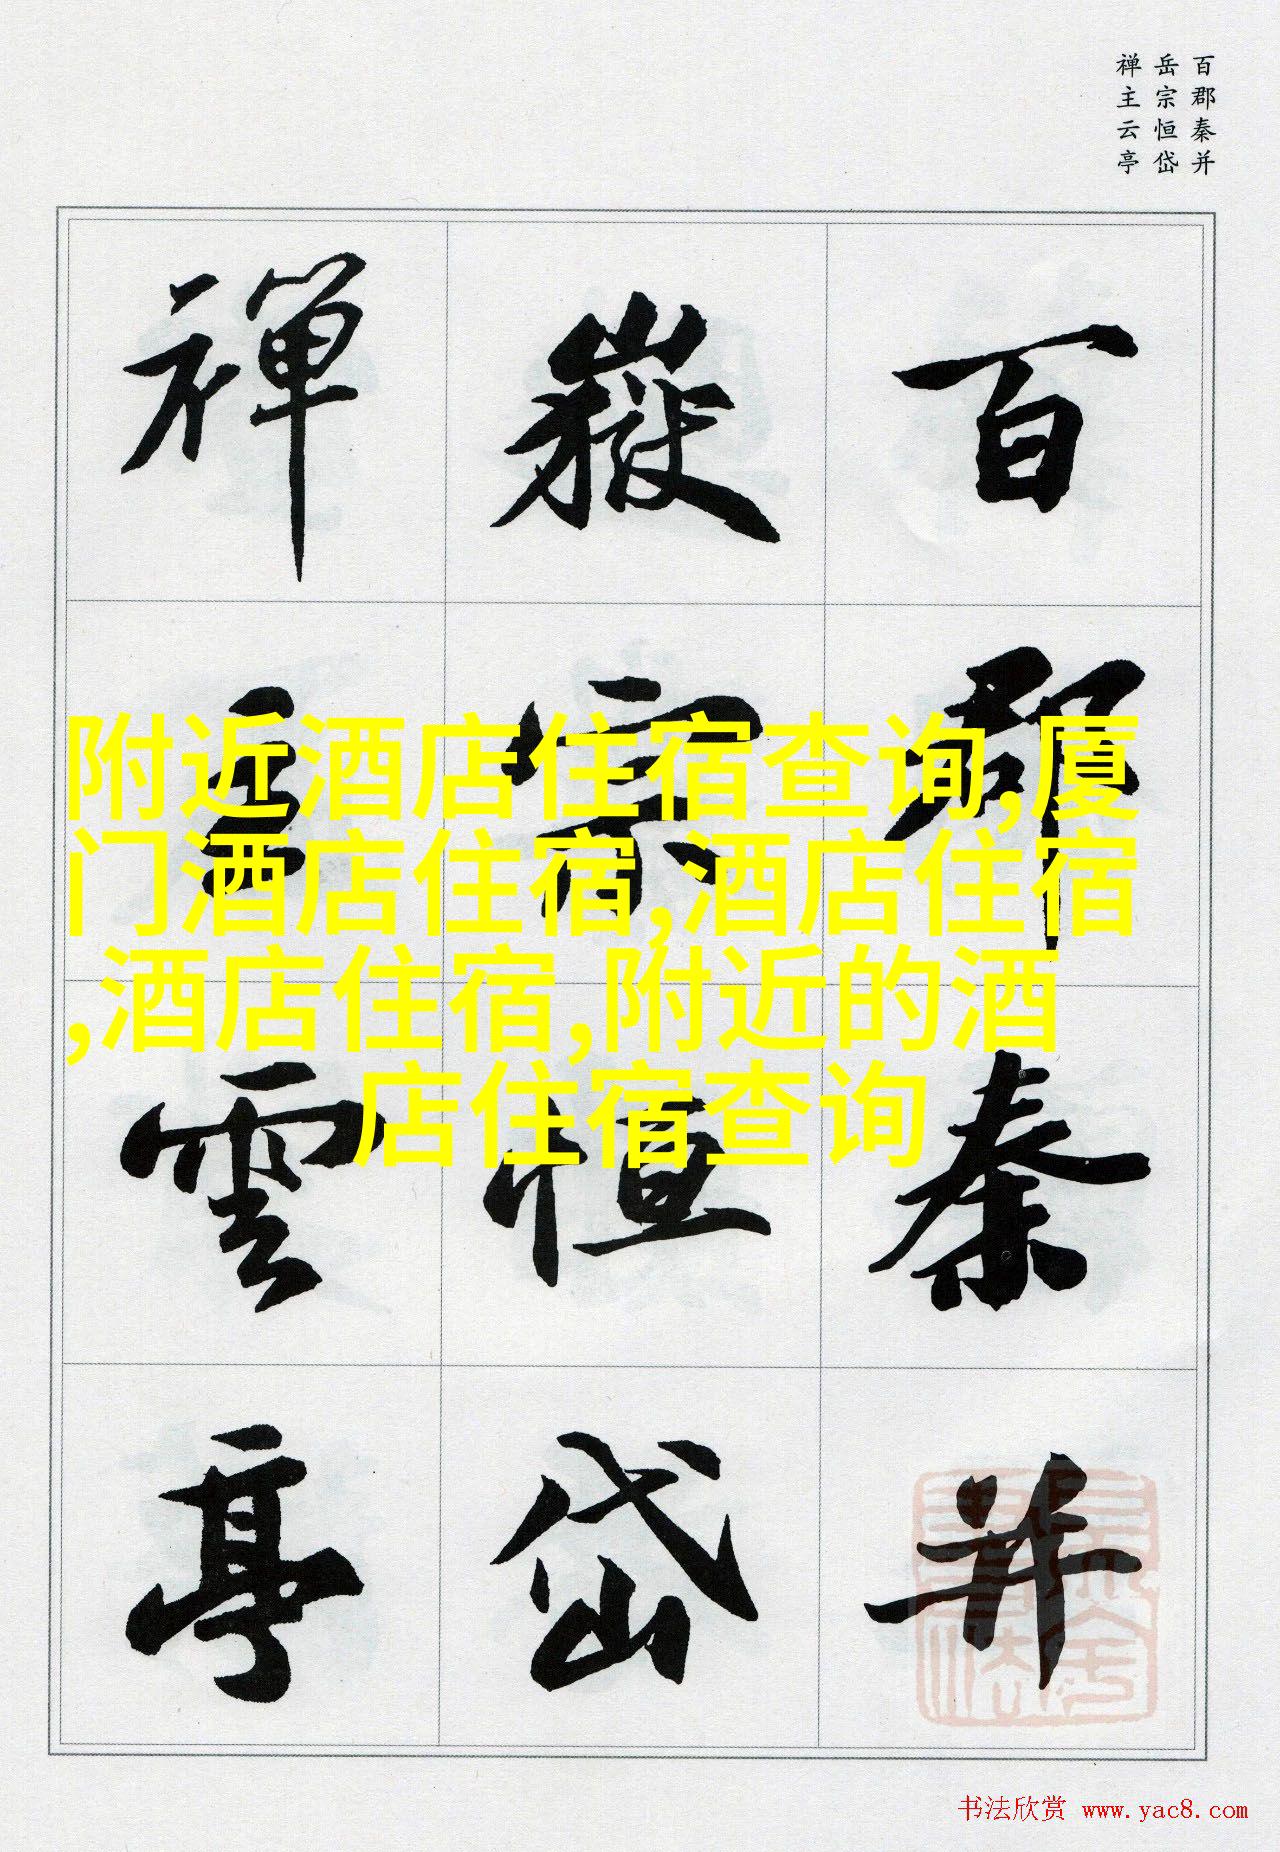 百郡秦并
岳宗恒岱
禅主云亭
百郡秦并
嶽宗恒岱
禪主雲亭
附近酒店住宿查询,厦
门酒店住宿,酒店住宿
,酒店住宿,附近的酒
店住宿查询
书法欣赏 www.yac8.com